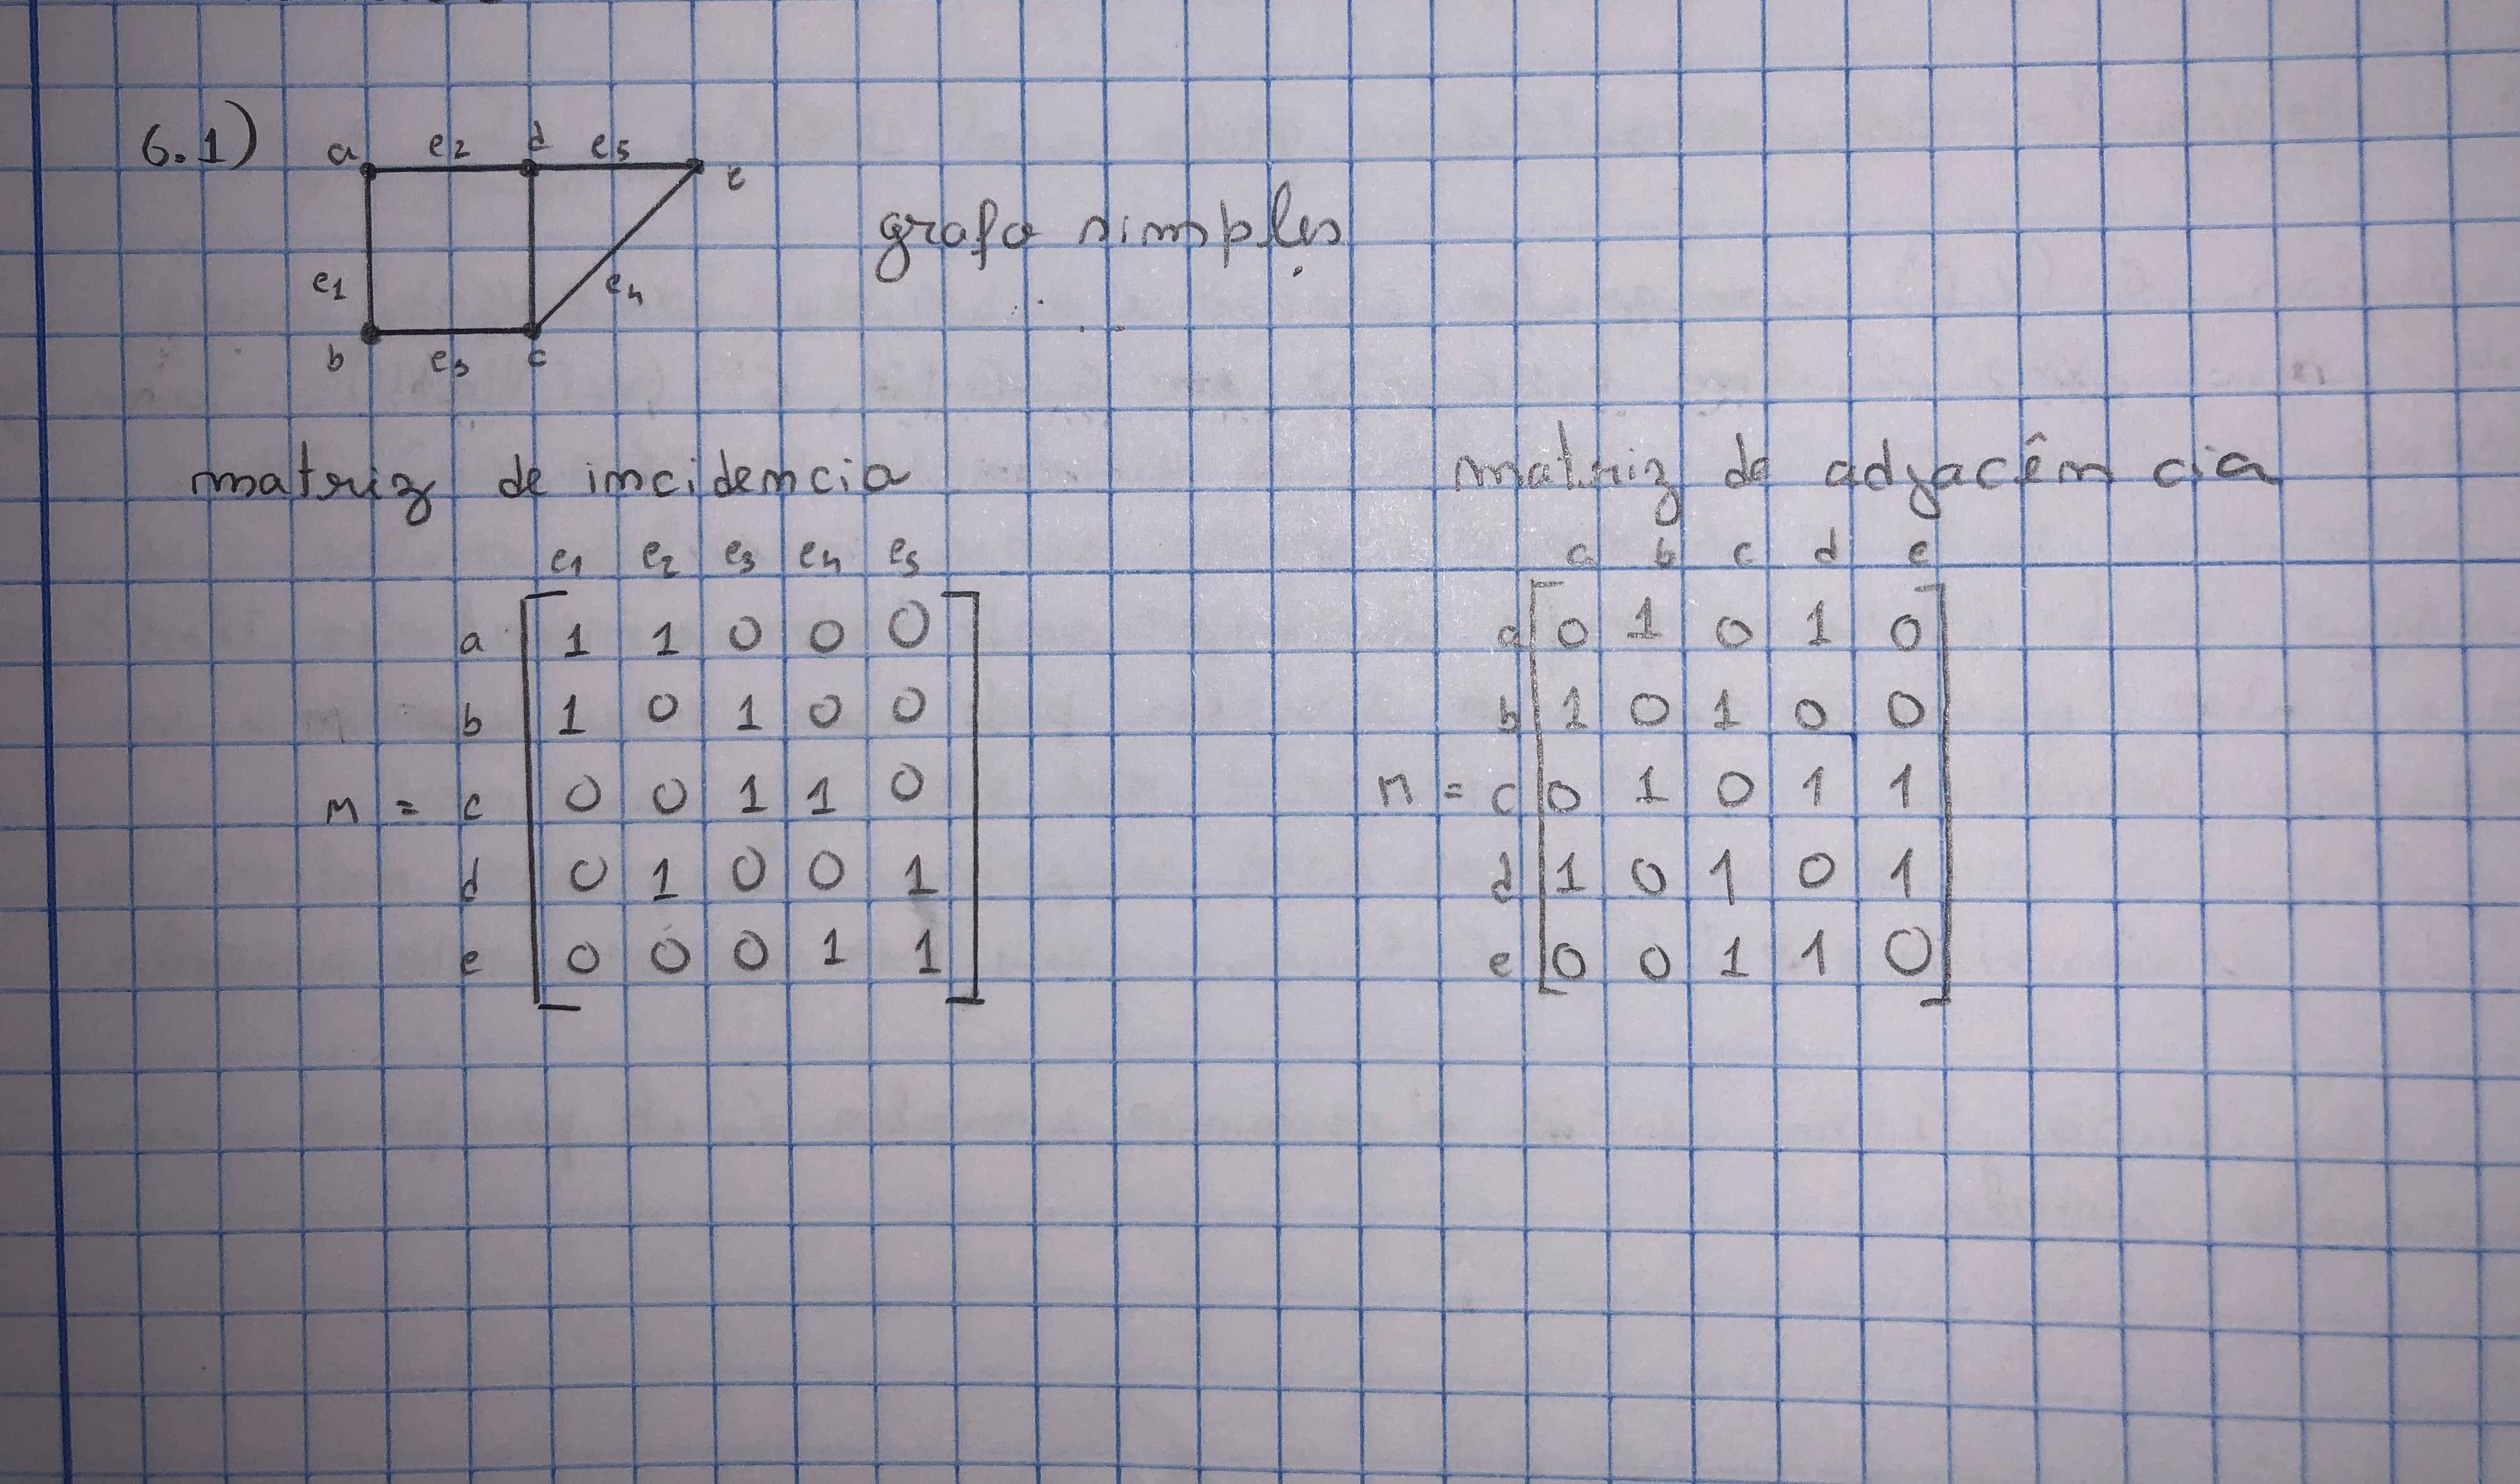 6.1) a e2 d e5 e
grafo simples
e1 e4
b e3 c
matriz de incidencia
e1 e2 e3 e4 e5
a 1 1 0 0 0
b 1 0 1 0 0
M = c 0 0 1 1 0
d 0 1 0 0 1
e 0 0 0 1 1
matriz de adjacência
a b c d e
a 0 1 0 1 0
b 1 0 1 0 0
M = c 0 1 0 1 1
d 1 0 1 0 1
e 0 0 1 1 0